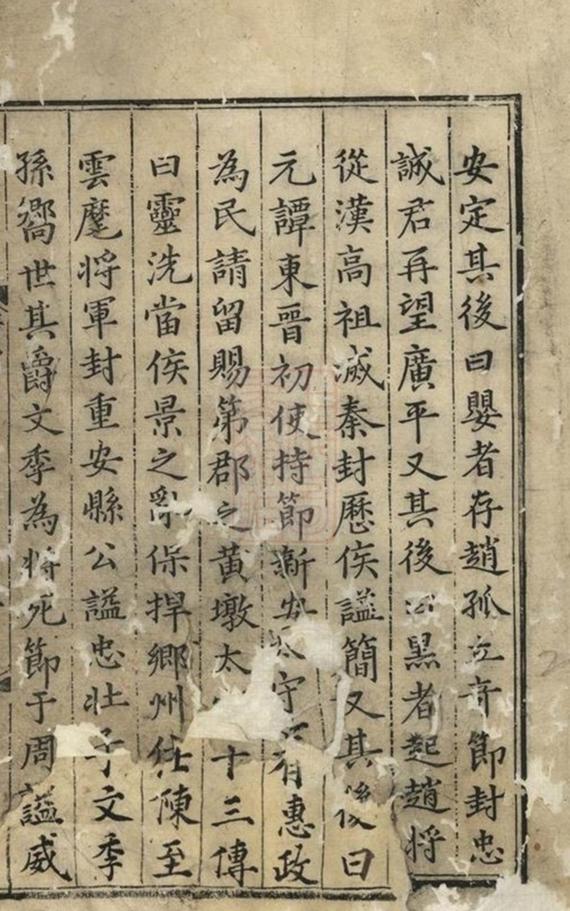 安定其後曰嬰者存趙孤立奇節封忠
誠君再望廣平又其後曰黑者起趙將
從漢高祖滅秦封歷侯謚簡又其後曰
元譚東晉初使持節新安太守有惠政
為民請留賜第郡之黃墩太十三傳
曰靈洗當侯景之亂保捍鄉州仕陳至
雲麾將軍封重安縣公謚忠壯子文季
孫嚮世其爵文季為將死節于周謚威